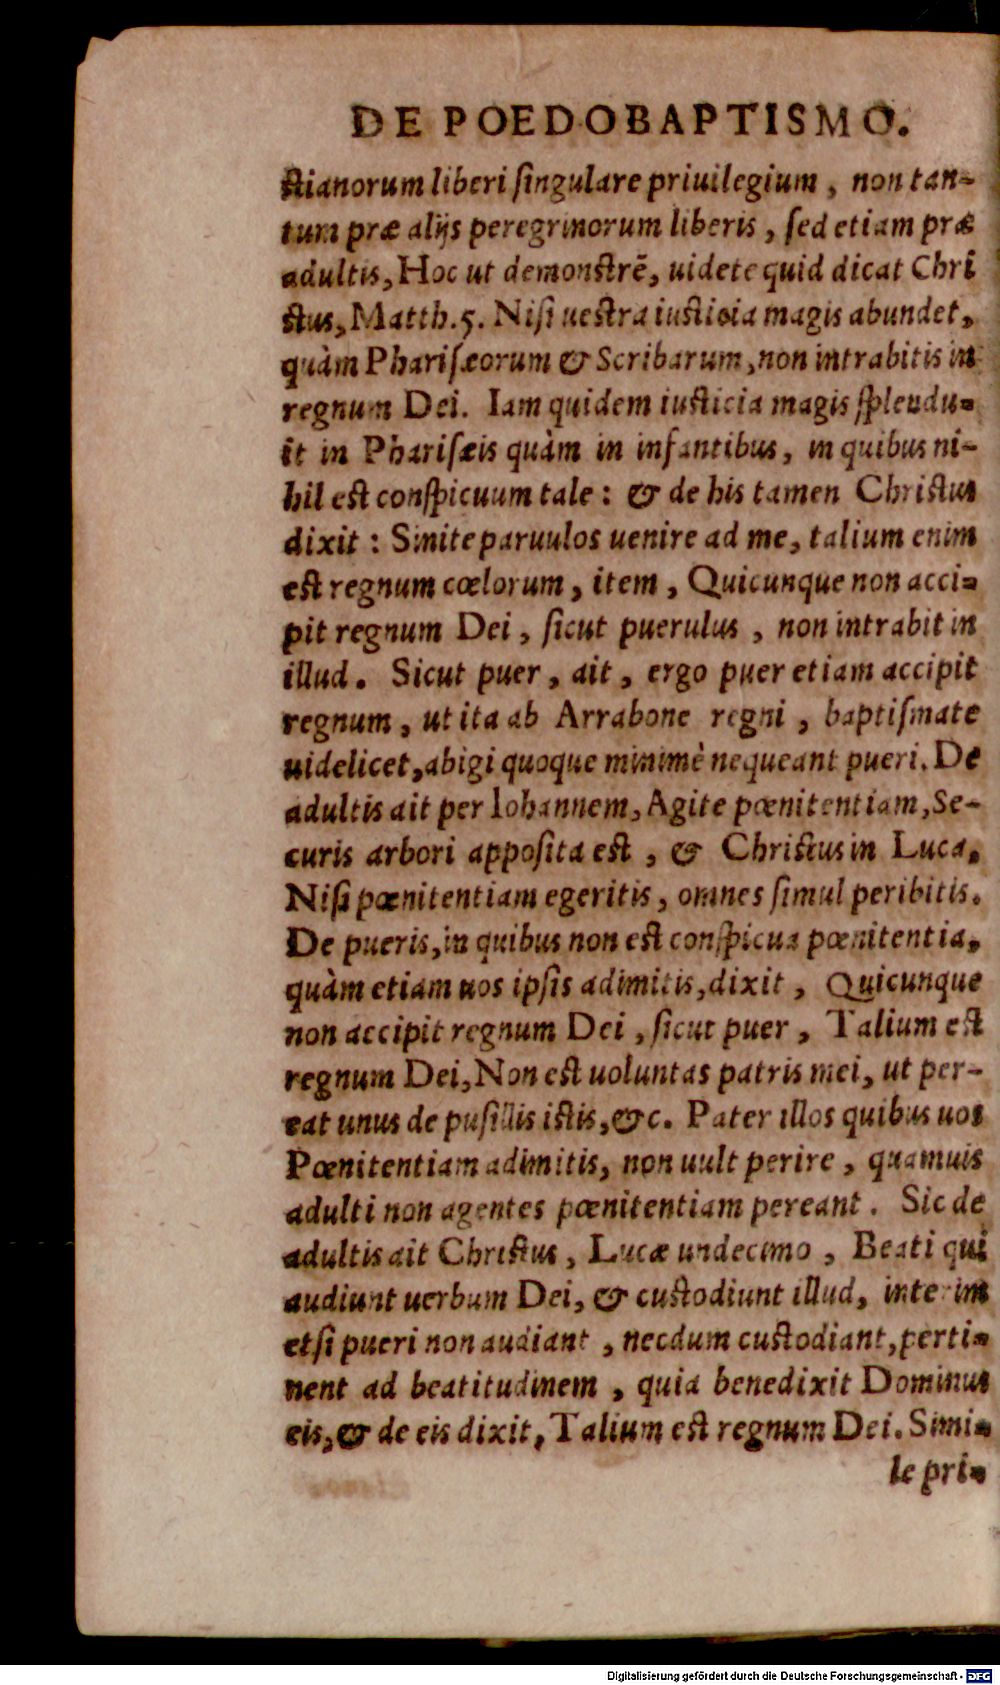 DE POEDOBAPTISMO.
ſtianorum liberi ſingulare priuilegium, non tan-
tum præ alijs peregrinorum liberis, ſed etiam præ
adultis, Hoc ut demonſtrẽ, uidete quid dicat Chri
ſtus, Matth.5. Niſi ueſtra iuſticia magis abundet,
quàm Phariſæorum & Scribarum, non intrabitis in
regnum Dei. Iam quidem iuſticia magis ſplendu-
it in Phariſæis quàm in infantibus, in quibus ni-
hil eſt conſpicuum tale: & de his tamen Chriſtus
dixit: Sinite paruulos uenire ad me, talium enim
eſt regnum cœlorum, item, Quicunque non acci-
pit regnum Dei, ſicut puerulus, non intrabit in
illud. Sicut puer, ait, ergo puer etiam accipit
regnum, ut ita ab Arrabone regni, baptiſmate
uidelicet, abigi quoque minimè nequeant pueri. De
adultis ait per Iohannem, Agite pœnitentiam, Se-
curis arbori appoſita eſt, & Chriſtus in Luca.
Niſi pœnitentiam egeritis, omnes ſimul peribitis.
De pueris, in quibus non eſt conſpicua pœnitentia,
quàm etiam uos ipſis adimitis, dixit, Quicunque
non accipit regnum Dei, ſicut puer, Talium eſt
regnum Dei, Non eſt uoluntas patris mei, ut per-
eat unus de puſillis iſtis, &c. Pater illos quibus uos
Pœnitentiam adimitis, non uult perire, quamuis
adulti non agentes pœnitentiam pereant. Sic de
adultis ait Chriſtus, Lucæ undecimo, Beati qui
audiunt uerbum Dei, & cuſtodiunt illud, interim
etſi pueri non audiant, necdum cuſtodiant, perti-
nent ad beatitudinem, quia benedixit Dominus
eis, & de eis dixit, Talium eſt regnum Dei. Simi-
le pri-
Digitalisierung gefördert durch die Deutsche Forschungsgemeinschaft - DFG